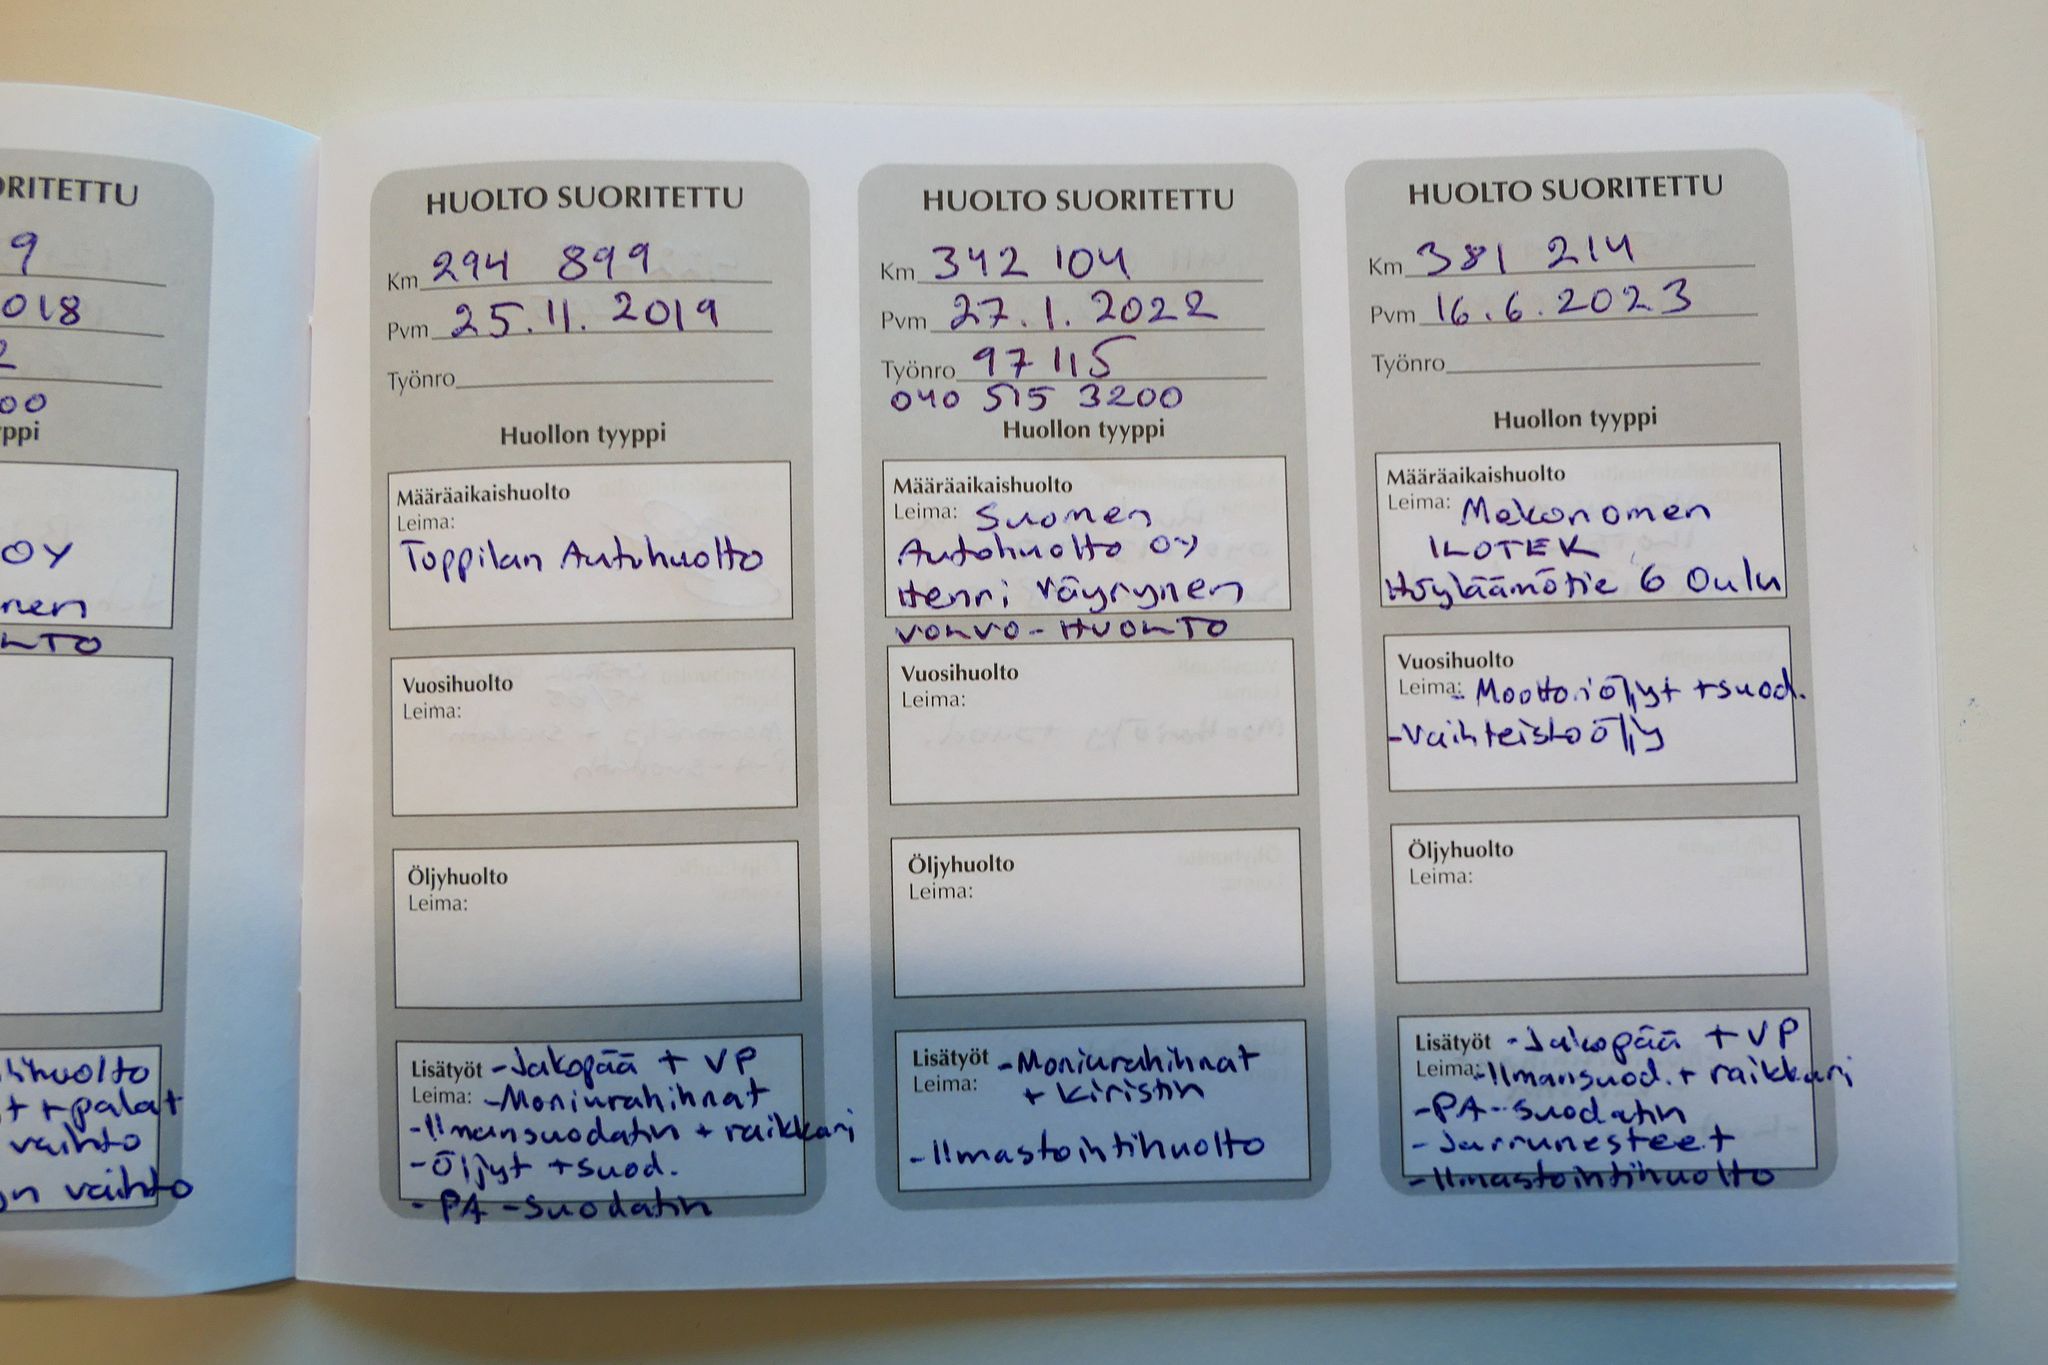 ORITETTU
9
018
2
00
yppi
OY
nen
LTO
huolto
t + palat
vaihto
yn vaihto
HUOLTO SUORITETTU
Km 294 899
Pvm 25.11.2019
Työnro
Huollon tyyppi
Määräaikaishuolto
Leima:
Toppilan Autohuolto
Vuosihuolto
Leima:
Öljyhuolto
Leima:
Lisätyöt -Jakopää + VP
Leima: -Moniurahihnat
-Ilmansuodatin + raikkari
-Öljyt +suod.
-PA-suodatin
HUOLTO SUORITETTU
Km 342 104
Pvm 27.1.2022
Työnro 97115
040 515 3200
Huollon tyyppi
Määräaikaishuolto
Leima: Suomen
Autohuolto oy
Henri Väyrynen
VOLVO-HUOLTO
Vuosihuolto
Leima:
Öljyhuolto
Leima:
Lisätyöt -Moniurahihnat
Leima: + kiristin
-Ilmastointihuolto
HUOLTO SUORITETTU
Km 381 214
Pvm 16.6.2023
Työnro
Huollon tyyppi
Määräaikaishuolto
Leima: Mekonomen
ILOTEK
Höyläämötie 6 Oulu
Vuosihuolto
Leima: - Moottoriöljyt +suod.
-Vaihteistoöljy
Öljyhuolto
Leima:
Lisätyöt -Jakopää + VP
Leima: -Ilmansuod. + raikkari
-PA-suodatin
-Jarrunesteet
-Ilmastointihuolto